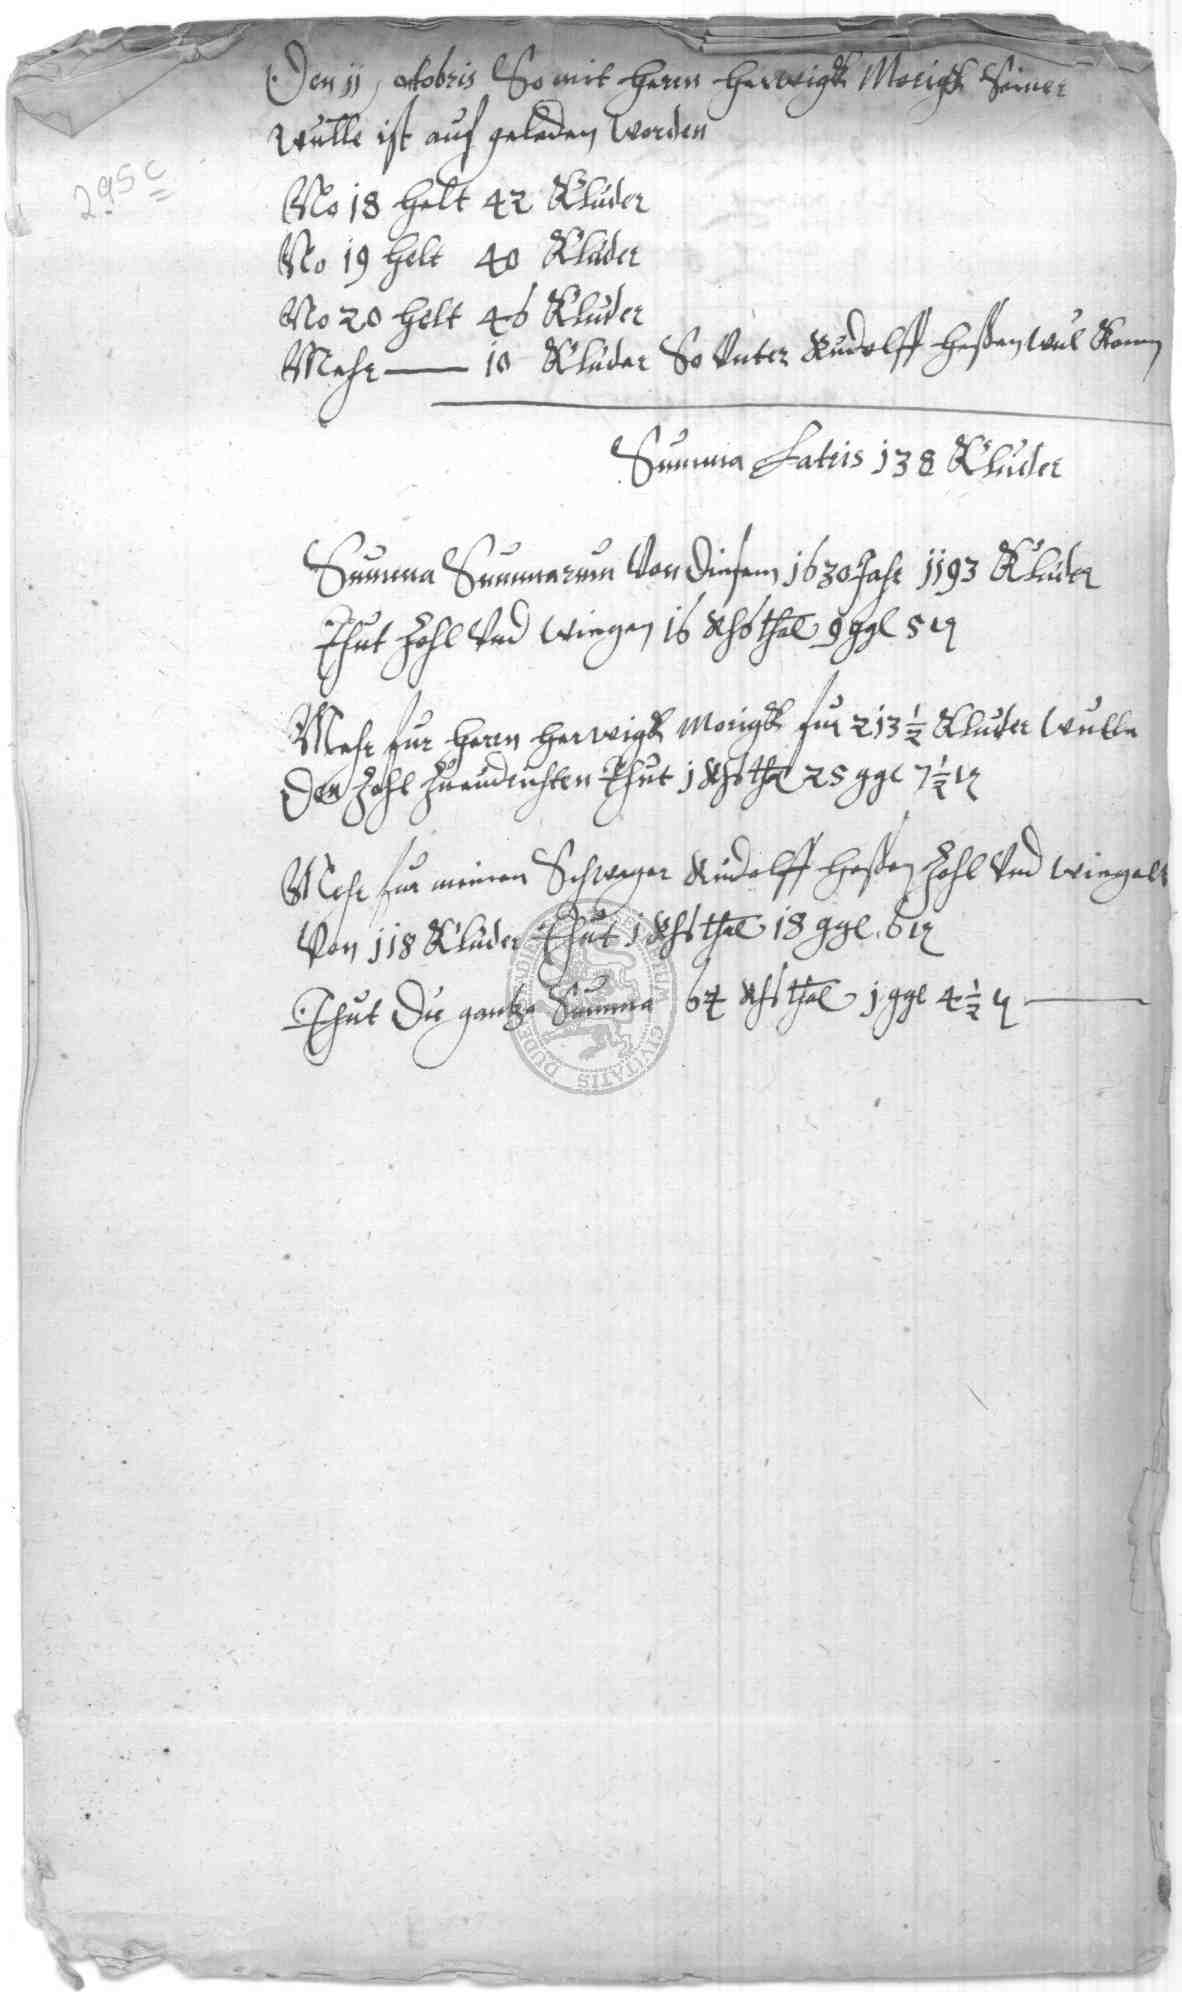 Den 11 octobris So mit Herrn Herwigk Morigk Seiner
Wulle ist auf geladen worden
295c
No 18 helt 42 Kluder
No 19 helt 40 Kluder
No 20 helt 46 Kluder
Mehr — 10 Kluder So Unter Rudolff Heßen wul Komn
Summa Lateris 138 Kluder
Summa Summarum Von Diesem 1630 Jahr 1193 Kluder
Thut Zohl Und wiegen 16 Rhs thal 9 ggl 5 ₰
Mehr fur Herrn Herwigk Morigk fur 213 1/2 Kluder Wulle
Den Zohl Zu endrichten Thut 1 Rhs thal 25 ggl 7 1/2 ₰
Mehr fur meinen Schwager Rudolff Heßen Zohl Und wiegelt
Von 118 Kluder Thut 1 Rhs thal 18 ggl 6 ₰
Thut Die gantze Summa 64 Rhs thal 1 ggl 4 1/2 ₰ —
CIVITATIS